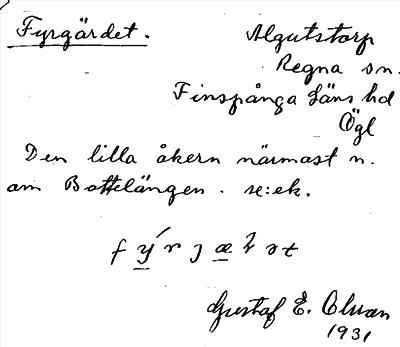 Fyrgärdet. Algutstorp
Regna sn.
Finspånga läns hd
Ögl
Den lilla åkern närmast n.
om Bottelängen. se: ek.
Gustaf E. Olsson
1931